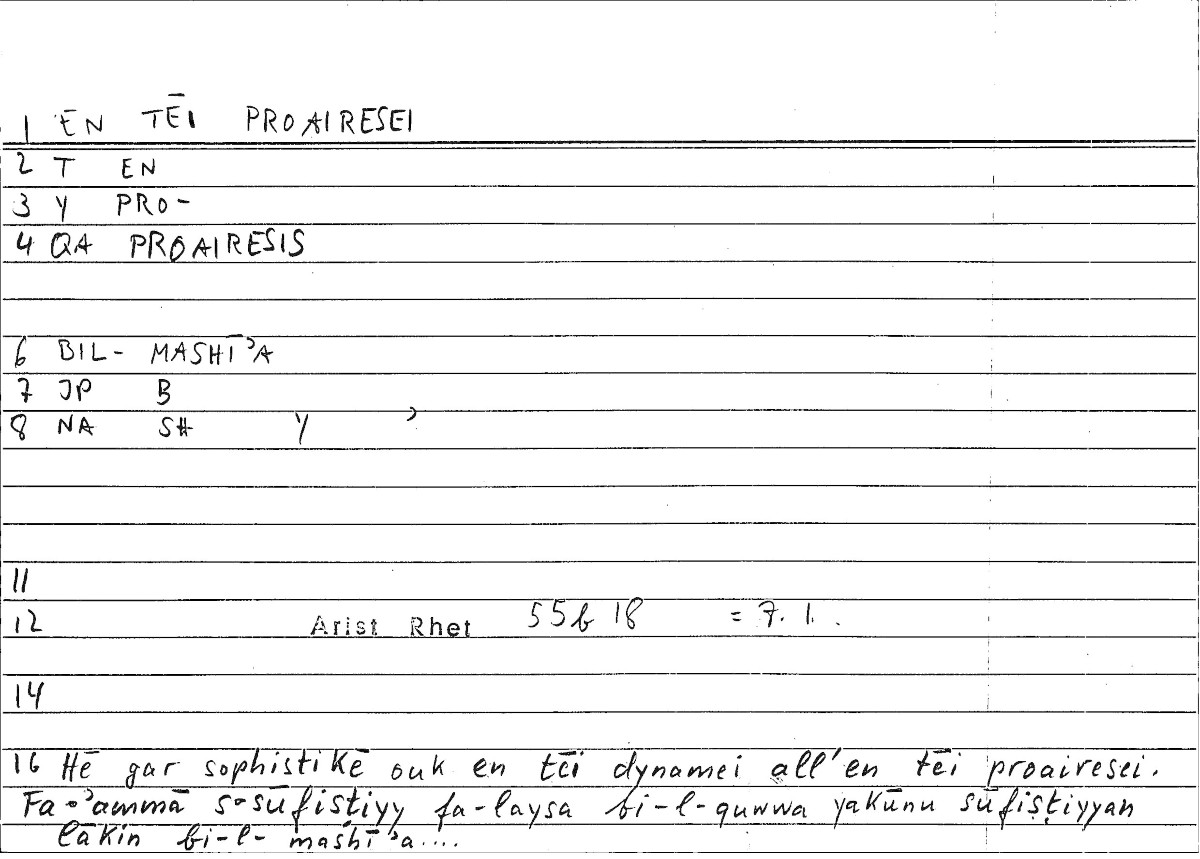 1 EN TĒI PROAIRESEI
2 T EN
3 Y PRO-
4 QA PROAIRESIS
6 BIL- MASHĪʾA
7 JP B
8 NA SH Y ʾ
11
12 Arist Rhet 55b 18 = 7. 1.
14
16 Hē gar sophistikē ouk en tēi dynamei all'en tēi proairesei.
Fa-ʾammā s-sūfisṭiyy fa-laysa bi-l-quwwa yakūnu sūfisṭiyyan
lākin bi-l-mashīʾa....